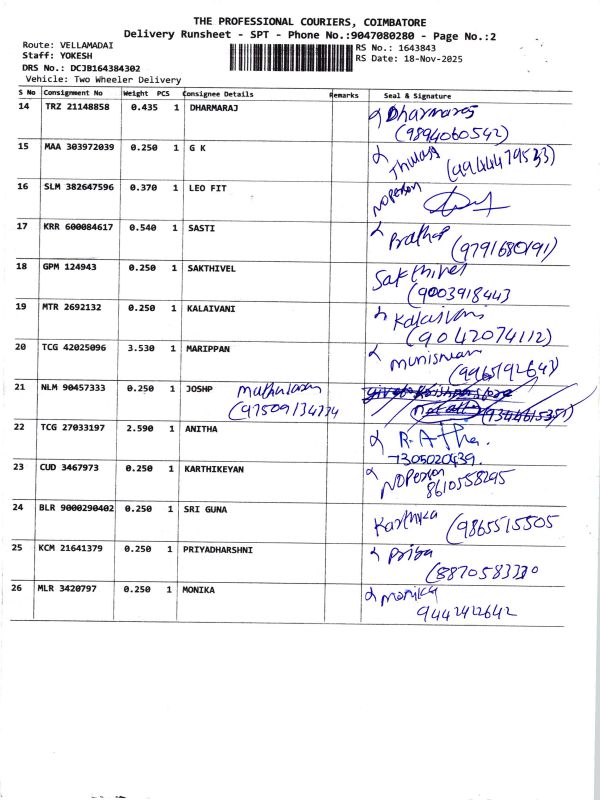 THE PROFESSIONAL COURIERS, COIMBATORE
Delivery Runsheet - SPT - Phone No.:9047080280 - Page No.:2
Route: VELLAMADAI
RS No.: 1643843
Staff: YOKESH
RS Date: 18-Nov-2025
DRS No.: DCJB164384302
Vehicle: Two Wheeler Delivery
S No Consignment No Weight PCS Consignee Details Remarks Seal & Signature
14 TRZ 21148858 0.435 1 DHARMARAJ Dharmaraj
(9894060542)
15 MAA 303972039 0.250 1 G K
16 SLM 382647596 0.370 1 LEO FIT NOPerson
17 KRR 600084617 0.540 1 SASTI Prathap
(9791680191)
18 GPM 124943 0.250 1 SAKTHIVEL Sakthivel
(9003918443
19 MTR 2692132 0.250 1 KALAIVANI Kalaivani
(9042074112)
20 TCG 42025096 3.530 1 MARIPPAN
(9965192643)
21 NLM 90457333 0.250 1 JOSHP
(9344615351)
22 TCG 27033197 2.590 1 ANITHA R. Atha.
7305020439.
23 CUD 3467973 0.250 1 KARTHIKEYAN NOPerson
8610558295
24 BLR 9000290402 0.250 1 SRI GUNA Karthika
(9865515505
25 KCM 21641379 0.250 1 PRIYADHARSHNI Priya
(8870583330
26 MLR 3420797 0.250 1 MONIKA monika
9442422642